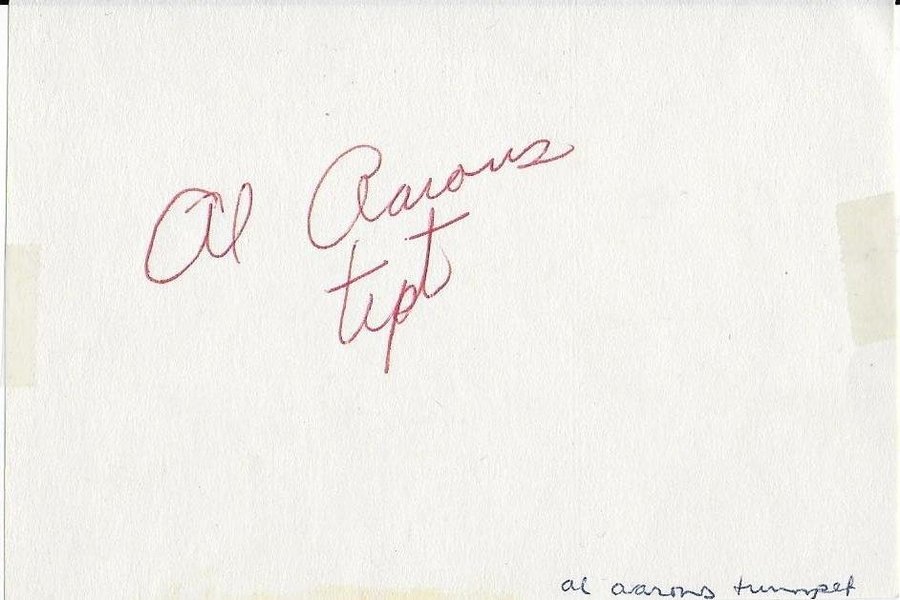 Al Aarons
tpt
al aarons trumpet